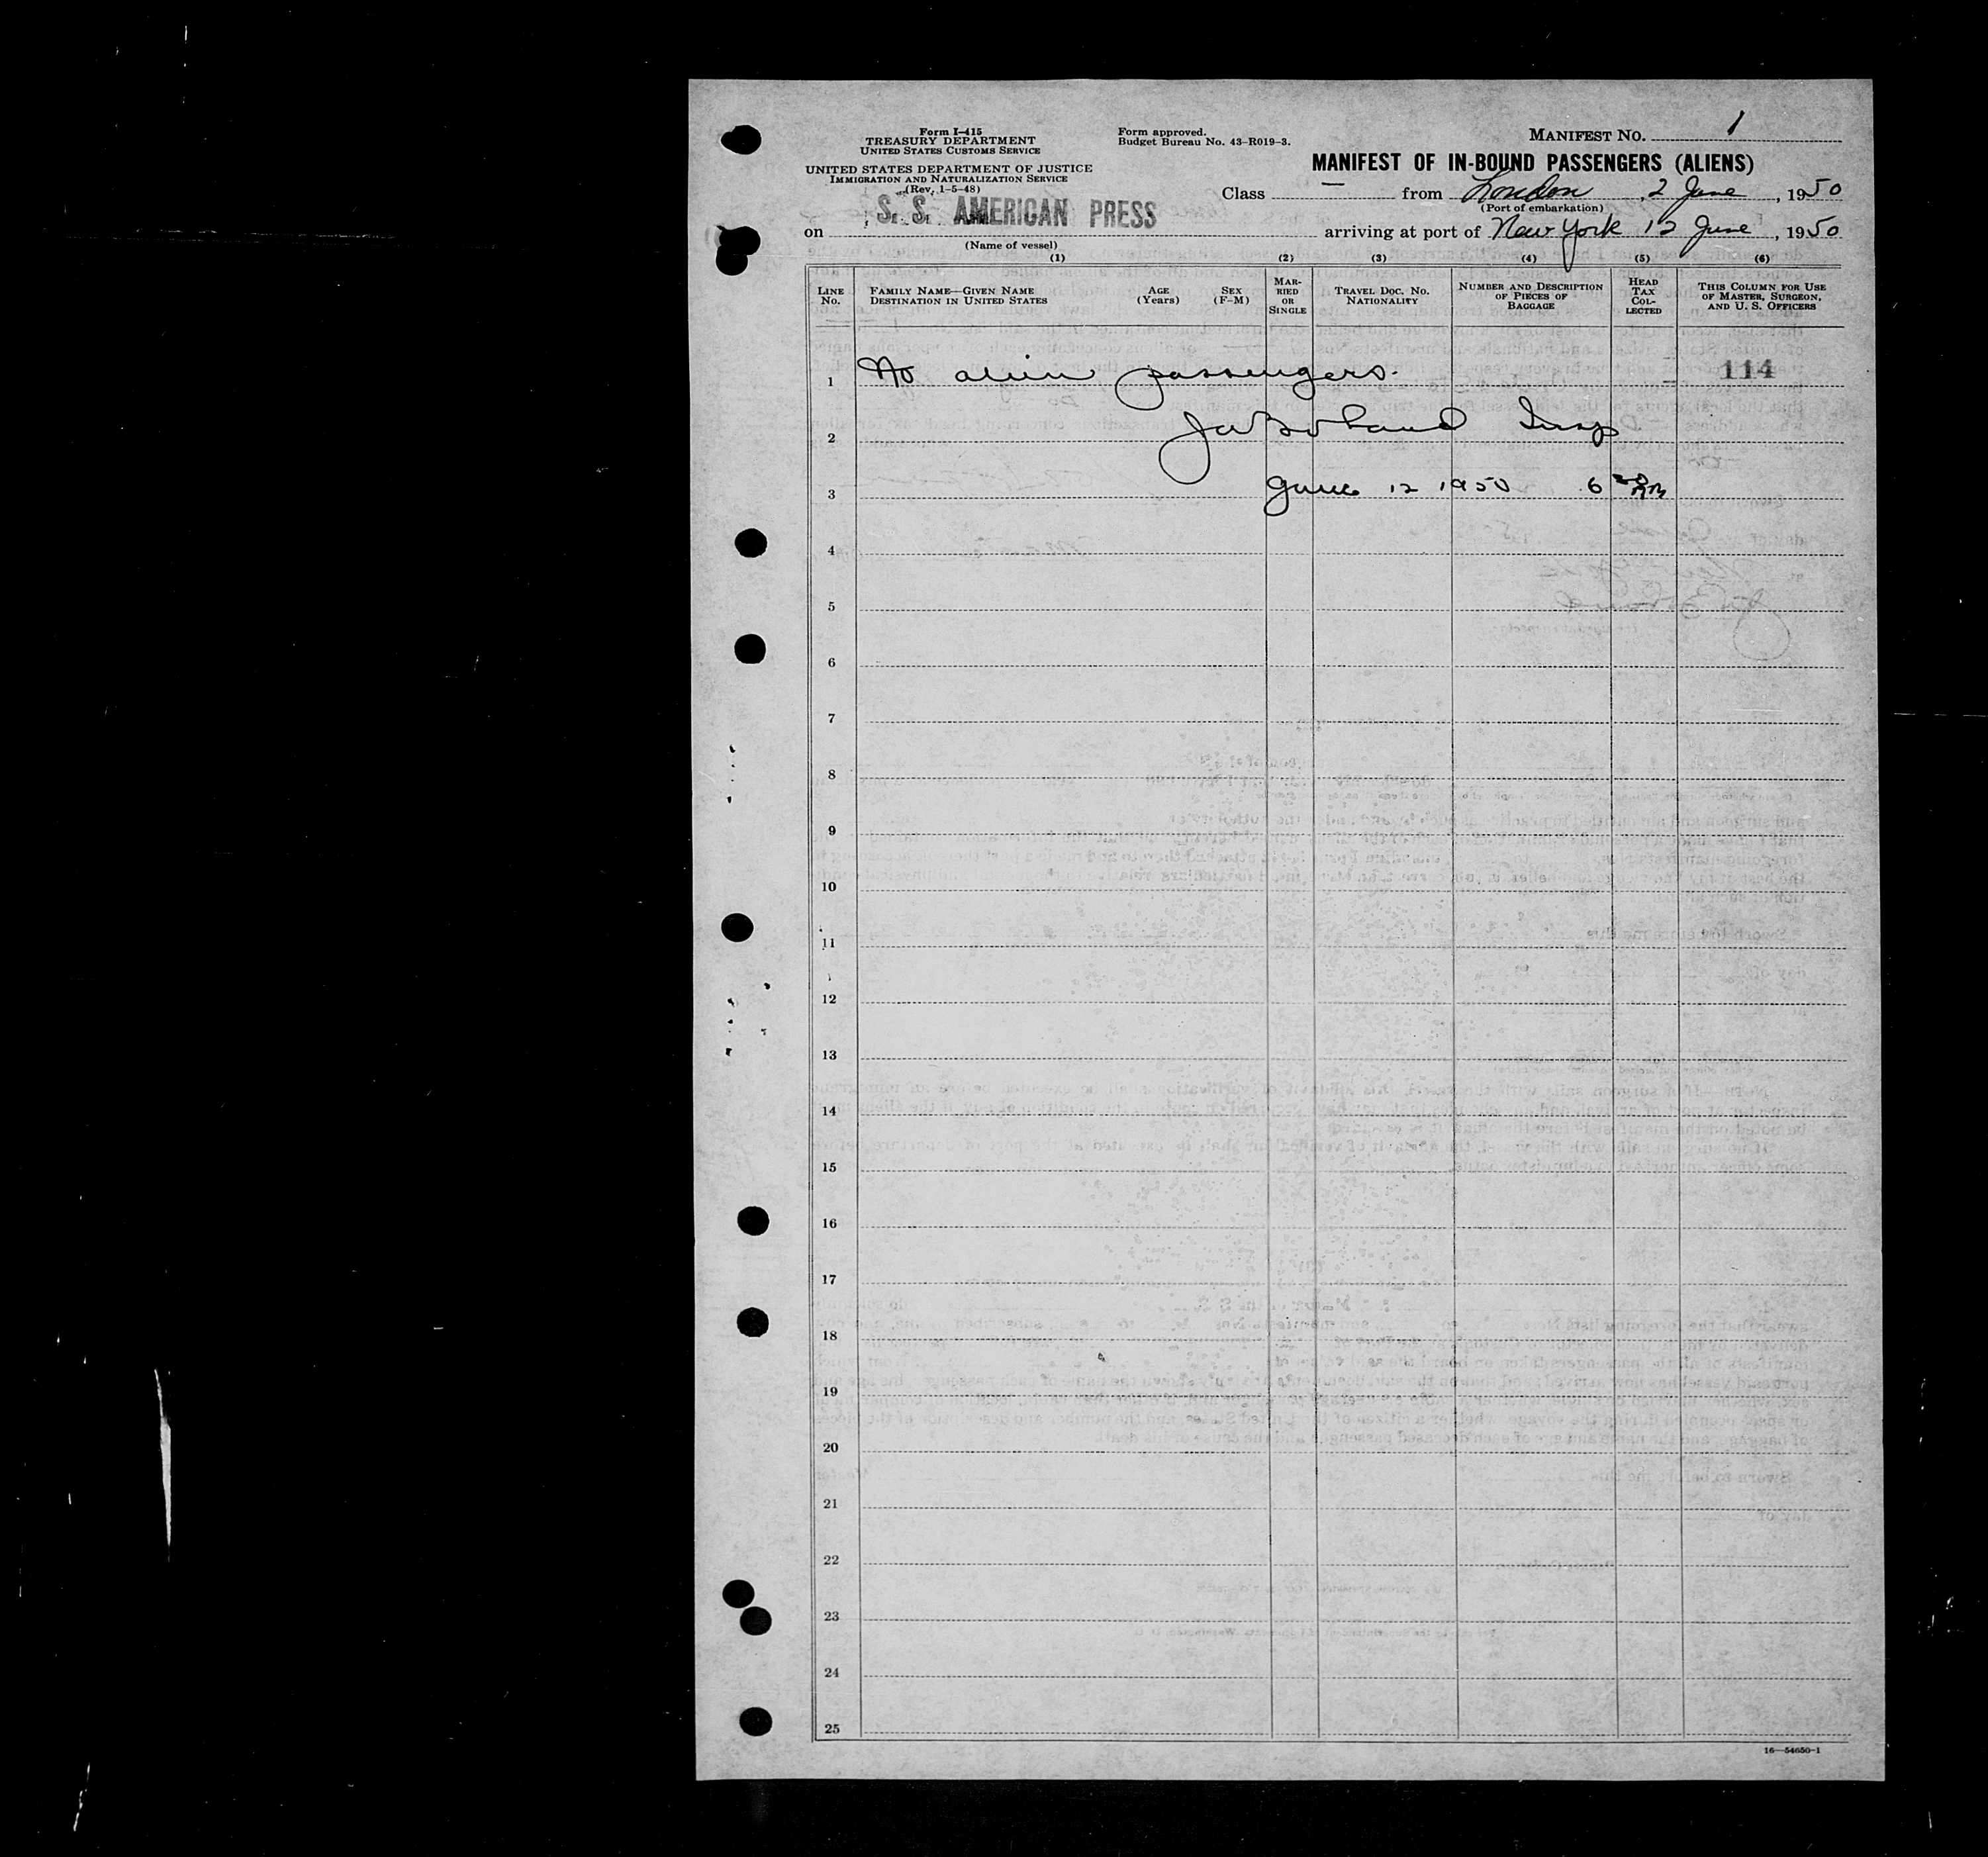 Form I-415
TREASURY DEPARTMENT
UNITED STATES CUSTOMS SERVICE
UNITED STATES DEPARTMENT OF JUSTICE
IMMIGRATION AND NATURALIZATION SERVICE
(Rev. 1-5-48)
Form approved.
Budget Bureau No. 43-R019-3.
MANIFEST NO. 1
MANIFEST OF IN-BOUND PASSENGERS (ALIENS)
Class — from London, 2 June, 1950
(Port of embarkation)
on S. S. AMERICAN PRESS arriving at port of New York 12 June, 1950
(Name of vessel)
(1) (2) (3) (4) (5) (6)
LINE No.
FAMILY NAME—GIVEN NAME
DESTINATION IN UNITED STATES
AGE (Years)
SEX (F-M)
MARRIED OR SINGLE
TRAVEL DOC. NO. NATIONALITY
NUMBER AND DESCRIPTION OF PIECES OF BAGGAGE
HEAD TAX COLLECTED
THIS COLUMN FOR USE OF MASTER, SURGEON, AND U. S. OFFICERS
1 No alien passengers. 114
2 Insp
3 June 12 1950 6
4
5
6
7
8
9
10
11
12
13
14
15
16
17
18
19
20
21
22
23
24
25
16—54650-1